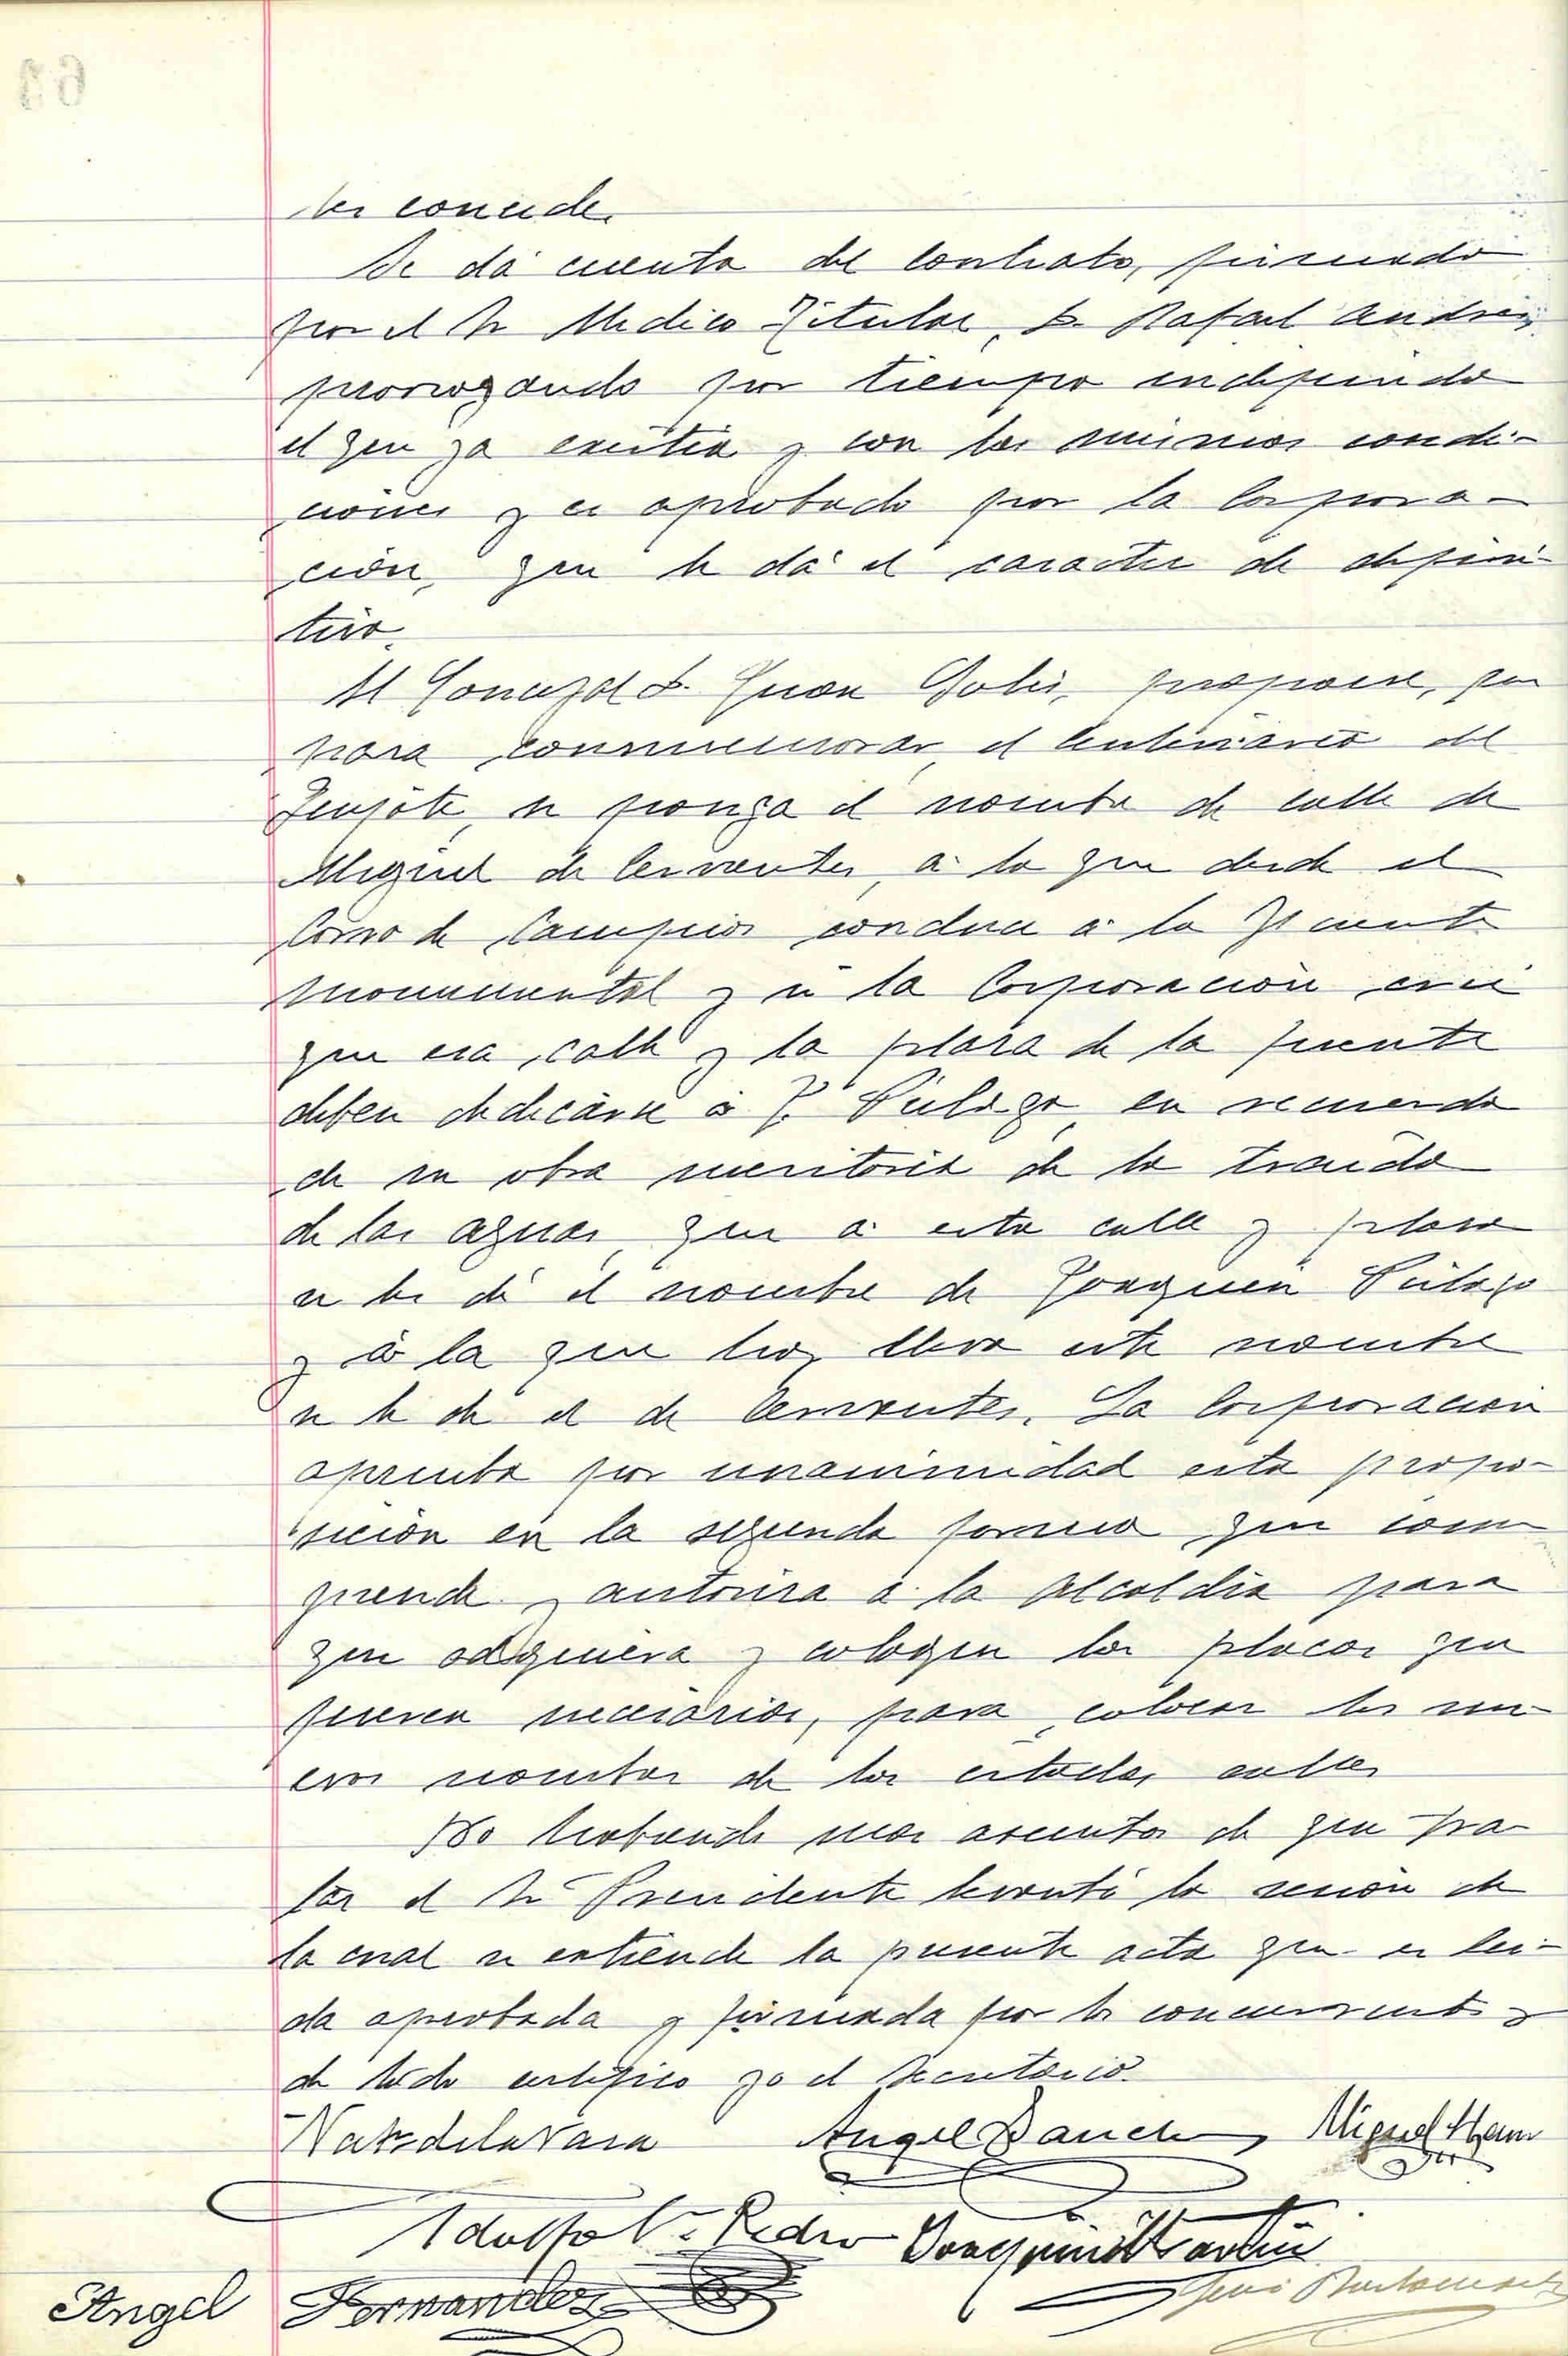 les concede.
Se dá cuenta del contrato, firmado
por el Sr Medico Titular, D. Rafael Andrés,
prorrogando por tiempo indefinido
el que ya existia y con las mismas condi-
ciones y es aprobado por la Corpora-
ción, que le dá el caracter de defini-
tivo.
El Concejal D. Juan propone, que
para conmemorar el Centenario del
Quijote, se ponga el nombre de calle de
Miguel de Cervantes, á la que desde el
Coso de Campios conduce á la Fuente
monumental y si la Corporación cree
que esa calle y la plaza de la fuente
deben dedicarse á J. Pulago, en recuerdo
de su obra meritoria de la traida
de las aguas, que á esta calle y plaza
se les dé el nombre de Joaquin Pulago
y á la que hoy lleva este nombre
se le dé el de Cervantes. La Corporación
aprueba por unanimidad esta propo-
sición en la segunda forma que com
prende y autoriza á la Alcaldia para
que adquiera y coloque las placas que
fueren necesarias, para colocar los nu-
evos nombres de las citadas calles
No habiendo mas asuntos de que tra-
tar el Sr Presidente levantó la sesión de
la cual se extiende la presente acta que es lei-
da aprobada y firmada por los concurrentes y
de todo certifico yo el Secretario.
Nat. de la Vara Angel Sanch Miguel
Adolfo V. Pedro Joaquin Martin
Angel Fernandez